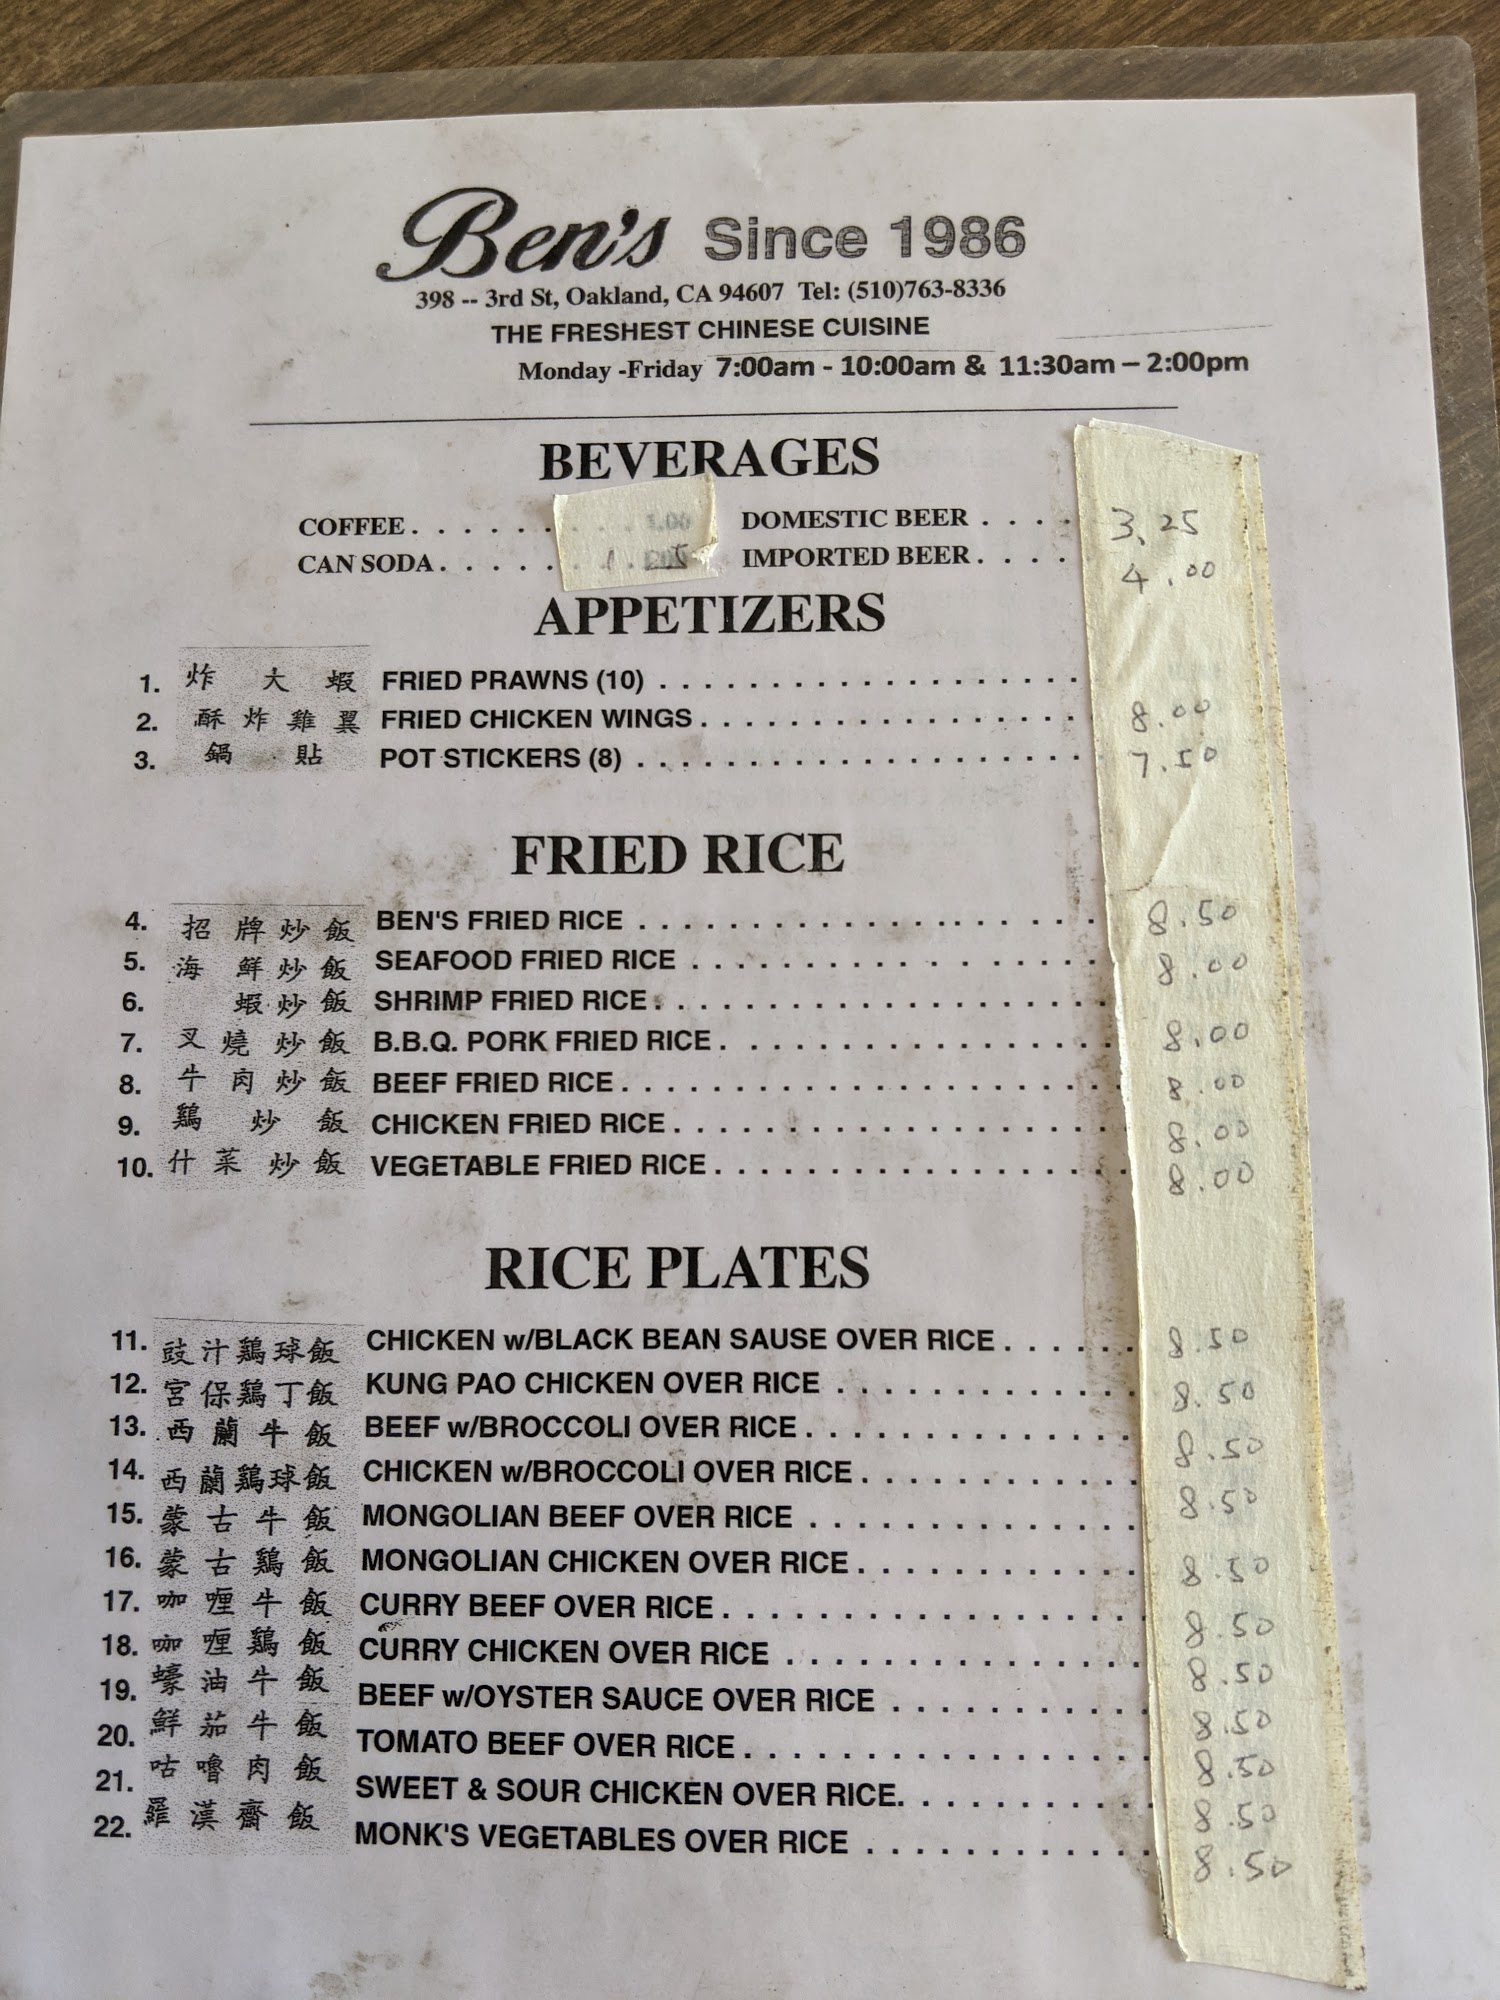 Ben's Since 1986
398 -- 3rd St, Oakland, CA 94607 Tel: (510)763-8336
THE FRESHEST CHINESE CUISINE
Monday -Friday 7:00am - 10:00am & 11:30am – 2:00pm
BEVERAGES
COFFEE. . . . . . . . . . 1.00 DOMESTIC BEER . . . . 3.25
CAN SODA. . . . . . IMPORTED BEER. . . . 4.00
APPETIZERS
1. 炸大蝦 FRIED PRAWNS (10) . . . . . . . . . . . . . . . . . . .
2. 酥炸雞翼 FRIED CHICKEN WINGS. . . . . . . . . . . . . . . . . 8.00
3. 鍋貼 POT STICKERS (8) . . . . . . . . . . . . . . . . . . . . 7.50
FRIED RICE
4. 招牌炒飯 BEN'S FRIED RICE . . . . . . . . . . . . . . . . . . . . . 8.50
5. 海鮮炒飯 SEAFOOD FRIED RICE . . . . . . . . . . . . . . . . . . 8.00
6. 蝦炒飯 SHRIMP FRIED RICE. . . . . . . . . . . . . . . . . . . .
7. 叉燒炒飯 B.B.Q. PORK FRIED RICE. . . . . . . . . . . . . . . . . 8.00
8. 牛肉炒飯 BEEF FRIED RICE. . . . . . . . . . . . . . . . . . . . . . 8.00
9. 鷄炒飯 CHICKEN FRIED RICE. . . . . . . . . . . . . . . . . . . 8.00
10. 什菜炒飯 VEGETABLE FRIED RICE. . . . . . . . . . . . . . . . . 8.00
RICE PLATES
11. 豉汁鷄球飯 CHICKEN w/BLACK BEAN SAUSE OVER RICE . . . . . 8.50
12. 宮保鷄丁飯 KUNG PAO CHICKEN OVER RICE . . . . . . . . . . . . . 8.50
13. 西蘭牛飯 BEEF w/BROCCOLI OVER RICE. . . . . . . . . . . . . . . 8.50
14. 西蘭鷄球飯 CHICKEN w/BROCCOLI OVER RICE. . . . . . . . . . . . . 8.50
15. 蒙古牛飯 MONGOLIAN BEEF OVER RICE . . . . . . . . . . . . . . .
16. 蒙古鷄飯 MONGOLIAN CHICKEN OVER RICE. . . . . . . . . . . . . 8.50
17. 咖喱牛飯 CURRY BEEF OVER RICE. . . . . . . . . . . . . . . . . . . 8.50
18. 咖喱鷄飯 CURRY CHICKEN OVER RICE . . . . . . . . . . . . . . . . 8.50
19. 蠔油牛飯 BEEF w/OYSTER SAUCE OVER RICE . . . . . . . . . . . 8.50
20. 鮮茄牛飯 TOMATO BEEF OVER RICE. . . . . . . . . . . . . . . . . . 8.50
21. 咕嚕肉飯 SWEET & SOUR CHICKEN OVER RICE. . . . . . . . . . . 8.50
22. 羅漢齋飯 MONK'S VEGETABLES OVER RICE . . . . . . . . . . . . 8.50